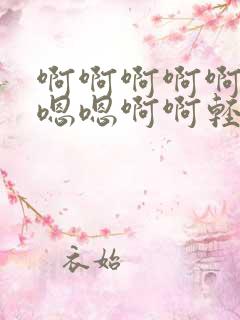 啊啊啊啊啊
嗯嗯啊啊轻
衣始